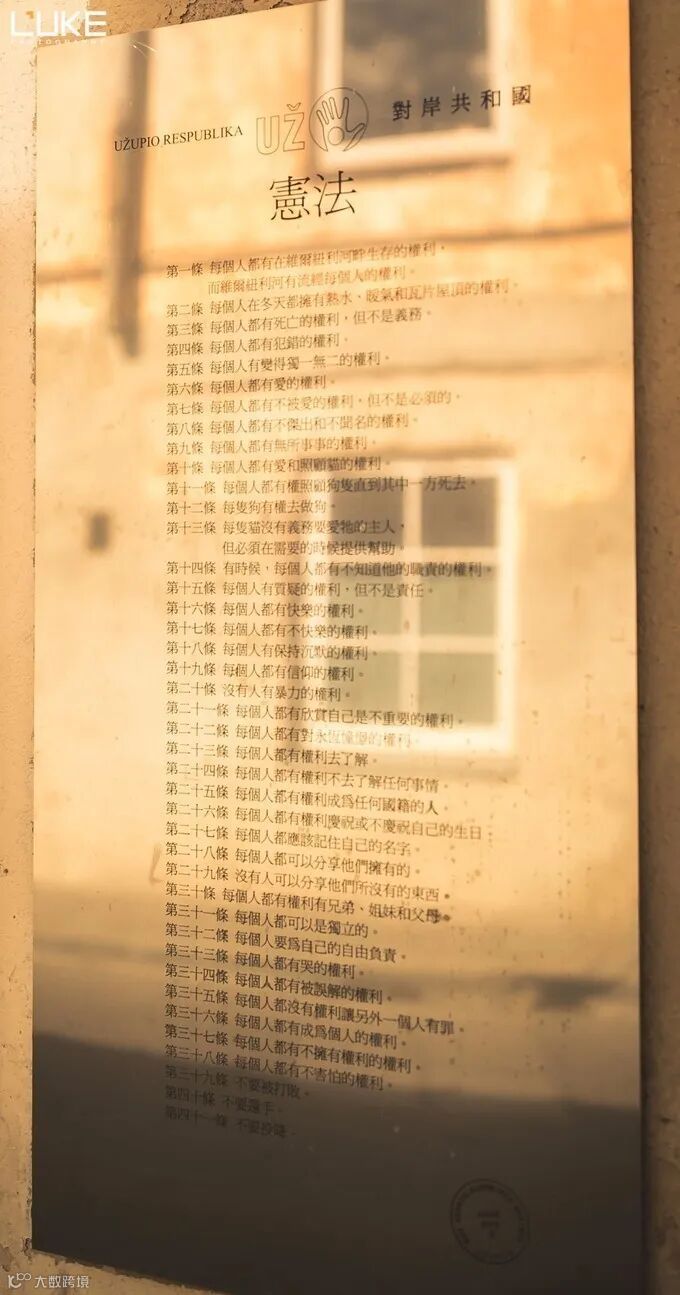 LUKE
PHOTOGRAPHY
UŽUPIO RESPUBLIKA
UŽ
對岸共和國
憲法
第一條 每個人都有在維爾紐利河畔生存的權利，
而維爾紐利河有流經每個人的權利。
第二條 每個人在冬天都擁有熱水、暖氣和瓦片屋頂的權利。
第三條 每個人都有死亡的權利，但不是義務。
第四條 每個人都有犯錯的權利。
第五條 每個人有變得獨一無二的權利。
第六條 每個人都有愛的權利。
第七條 每個人都有不被愛的權利，但不是必須的。
第八條 每個人都有不傑出和不聞名的權利。
第九條 每個人都有無所事事的權利。
第十條 每個人都有愛和照顧貓的權利。
第十一條 每個人都有權照顧狗隻直到其中一方死去。
第十二條 每隻狗有權去做狗。
第十三條 每隻貓沒有義務要愛牠的主人，
但必須在需要的時候提供幫助。
第十四條 有時候，每個人都有不知道他的職責的權利。
第十五條 每個人有質疑的權利，但不是責任。
第十六條 每個人都有快樂的權利。
第十七條 每個人都有不快樂的權利。
第十八條 每個人有保持沉默的權利。
第十九條 每個人都有信仰的權利。
第二十條 沒有人有暴力的權利。
第二十一條 每個人都有欣賞自己是不重要的權利。
第二十二條 每個人都有對永恆憧憬的權利。
第二十三條 每個人都有權利去了解。
第二十四條 每個人都有權利不去了解任何事情。
第二十五條 每個人都有權利成爲任何國籍的人。
第二十六條 每個人都有權利慶祝或不慶祝自己的生日。
第二十七條 每個人都應該記住自己的名字。
第二十八條 每個人都可以分享他們擁有的。
第二十九條 沒有人可以分享他們所沒有的東西。
第三十條 每個人都有權利有兄弟、姐妹和父母。
第三十一條 每個人都可以是獨立的。
第三十二條 每個人要爲自己的自由負責。
第三十三條 每個人都有哭的權利。
第三十四條 每個人都有被誤解的權利。
第三十五條 每個人都沒有權利讓另外一個人有罪。
第三十六條 每個人都有成爲個人的權利。
第三十七條 每個人都有不擁有權利的權利。
第三十八條 每個人都有不害怕的權利。
第三十九條 不要被打敗。
第四十條 不要還手。
第四十一條 不要投降。
大数跨境